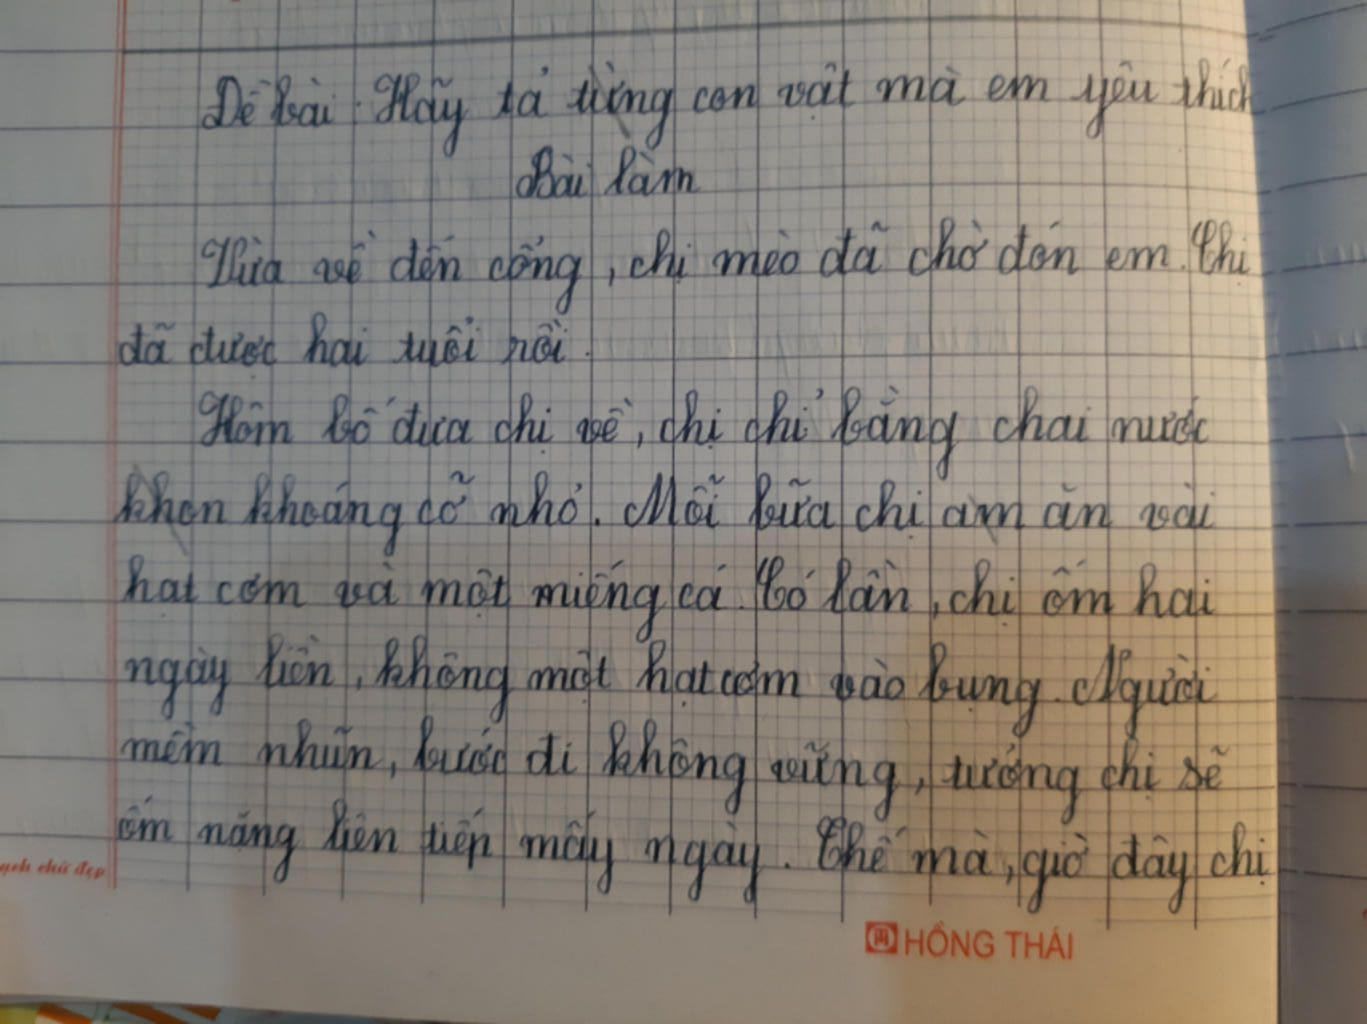 Đề bài: Hãy tả từng con vật mà em yêu thích
Bài làm
Vừa về đến cổng, chị mèo đã chờ đón em. Chị
đã được hai tuổi rồi.
Hôm bố đưa chị về, chị chỉ bằng chai nước
khoáng cỡ nhỏ. Mỗi bữa chị ăn vài
hạt cơm và một miếng cá. Có lần, chị ốm hai
ngày liền, không một hạt cơm vào bụng. Người
mềm nhũn, bước đi không vững, tưởng chị sẽ
ốm nặng liên tiếp mấy ngày. Thế mà, giờ đây chị
chữ đẹp
HỒNG THÁI